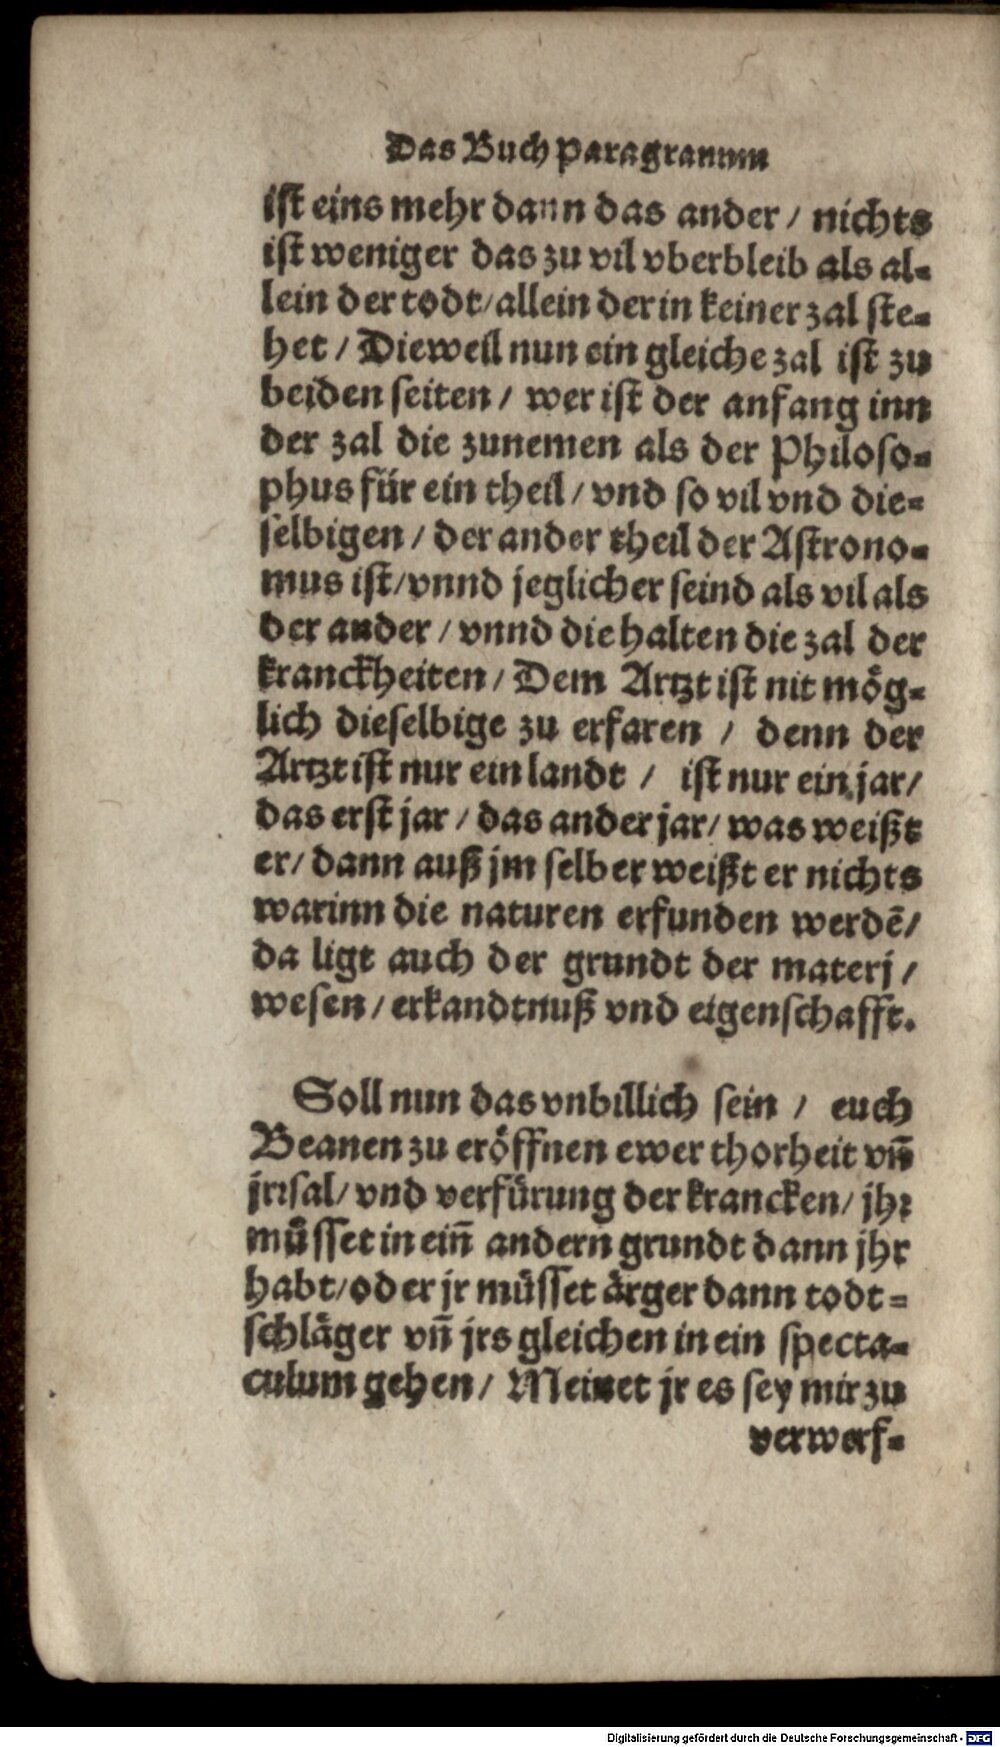 Das Buch Paragranum
ist eins mehr dann das ander / nichts
ist weniger das zu vil vberbleib als al⸗
lein der todt / allein der in keiner zal ste⸗
het / Dieweil nun ein gleiche zal ist zu
beiden seiten / wer ist der anfang inn
der zal die zunemen als der Philoso⸗
phus für ein theil / vnd so vil vnd die⸗
selbigen / der ander theil der Astrono⸗
mus ist / vnnd jeglicher seind als vil als
der ander / vnnd die halten die zal der
kranckheiten / Dem Artzt ist nit mög⸗
lich dieselbige zu erfaren / denn der
Artzt ist nur ein landt / ist nur ein jar /
das erst jar / das ander jar / was weißt
er / dann auß jm selber weißt er nichts
warinn die naturen erfunden werdē /
da ligt auch der grundt der materj /
wesen / erkandtnuß vnd eigenschafft.
Soll nun das vnbillich sein / euch
Beanen zu eröffnen ewer thorheit vn̄
jrrsal / vnd verfürung der krancken / jhr
müsset in ein̄ andern grundt dann jhr
habt / oder jr müsset ärger dann todt⸗
schläger vn̄ jrs gleichen in ein specta⸗
culum gehen / Meinet jr es sey mir zu
verwerf⸗
Digitalisierung gefördert durch die Deutsche Forschungsgemeinschaft - DFG